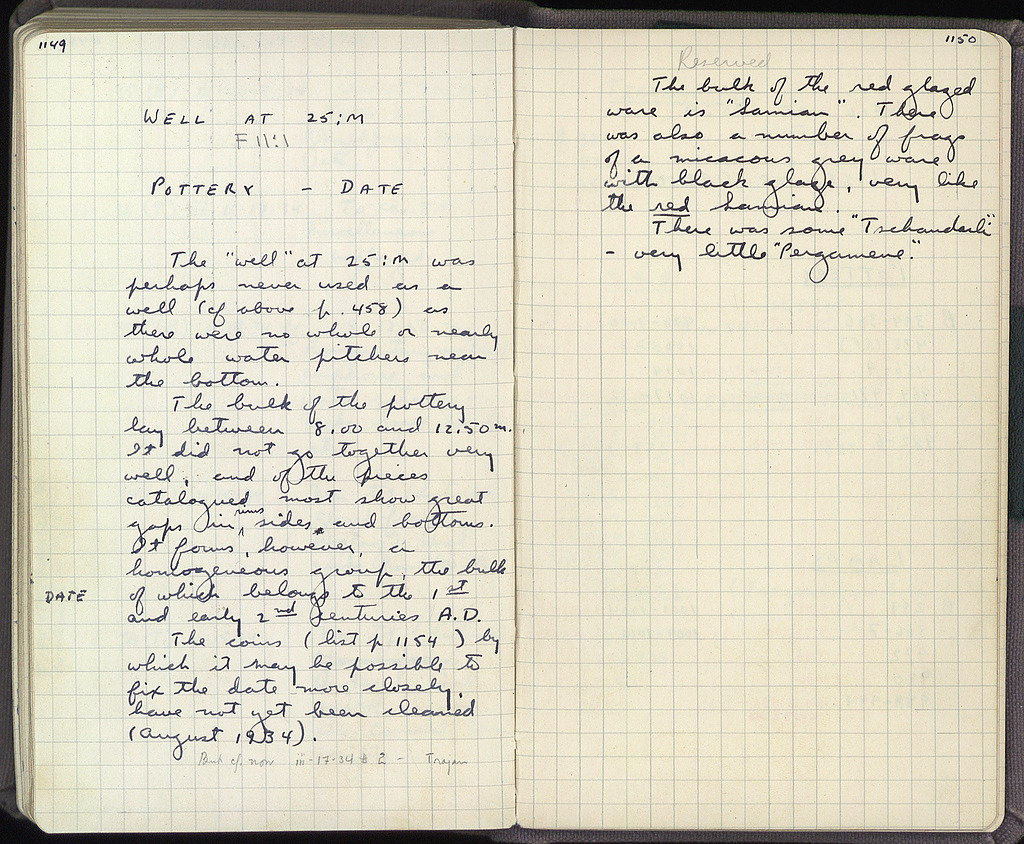 1149
WELL AT 25:M
F 11:1
POTTERY - DATE
The "well" at 25:M was
perhaps never used as a
well (cf above p. 458) as
there were no whole or nearly
whole water pitchers near
the bottom.
The bulk of the pottery
lay between 8.00 and 12.50 m.
It did not go together very
well, and of the pieces
catalogued most show great
gaps in rims, sides and bottoms.
It forms, however, a
homogeneous group, the bulk
DATE of which belongs to the 1st
and early 2nd centuries A.D.
The coins (list p 1154) by
which it may be possible to
fix the date more closely,
have not yet been cleaned
(August 1934).
But cf. now iii-17-34 # 2 - Trajan
1150
Reserved
The bulk of the red glazed
ware is "Samian". There
was also a number of frags
of a micacous grey ware
with black glaze, very like
the red Samian.
There was some "Tschandarli"
- very little "Pergamene".